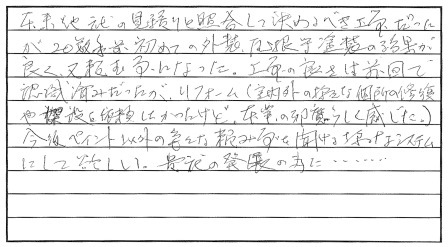 本来他社の見積りと照合して決めるべき工事だった
が20数年前初めての外装、屋根等塗装の効果が
良く又頼む気になった。工事の良さは前回で
認識済みだったが、リフォーム(室内外の様々な個所の修繕
や を依頼したかったけど、本業の邪魔らしく感じた。)
今後ペイント以外の色々な頼み事を聞ける様なシステム
にして欲しい。貴社の発展の為に・・・・・・・